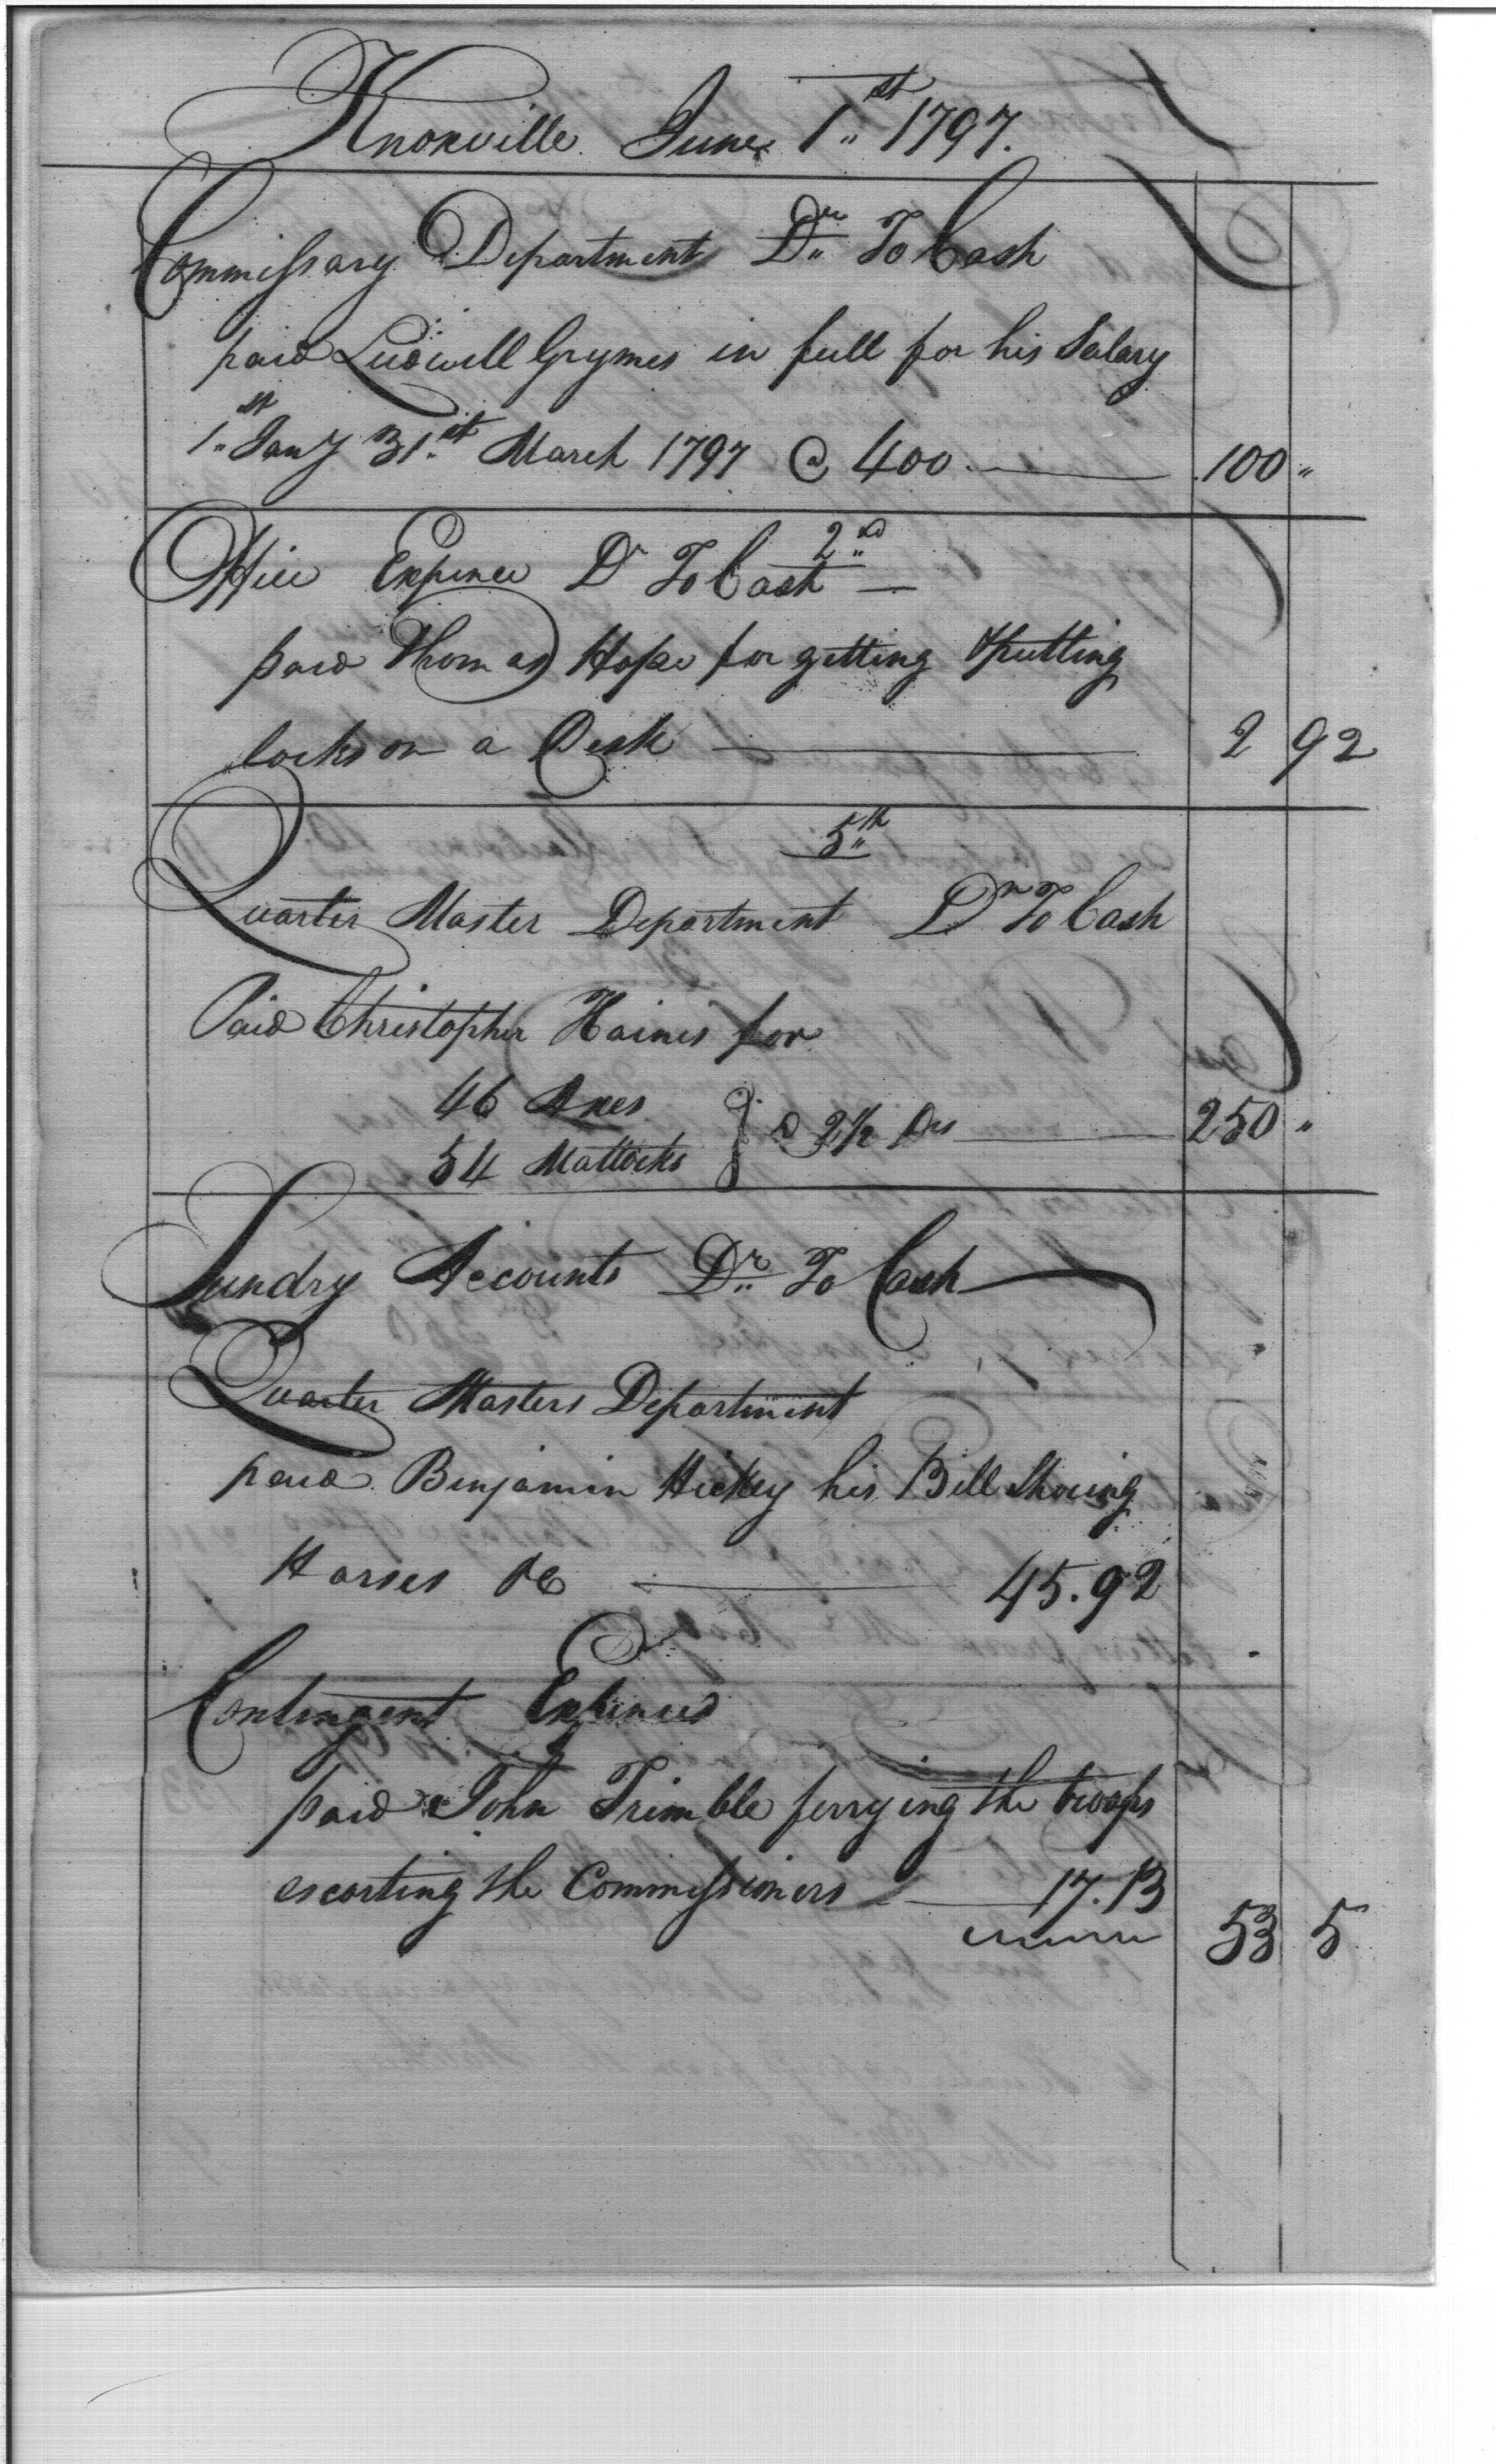 Knoxville June 1st 1797.
Commissary Department Dr To Cash
paid Ludwell Grymes in full for his Salary
1st Jany 31st March 1797 @ 400. 100 "
2nd
Office Expence Dr To Cash
paid Thomas Hope for getting & putting
locks on a Desk 2 92
5th
Quarter Master Department Dr To Cash
Paid Christopher Haines for
46 Axes
54 Mattocks } @ 2½ Drs 250 "
Sundry Accounts Dr To Cash
Quarter Masters Department
paid Benjamin Hickey his Bill Shoeing
Horses &c 45.92
Contingent Expences
paid John Trimble ferrying the troops
escorting the Commissioners 17.13
53 5